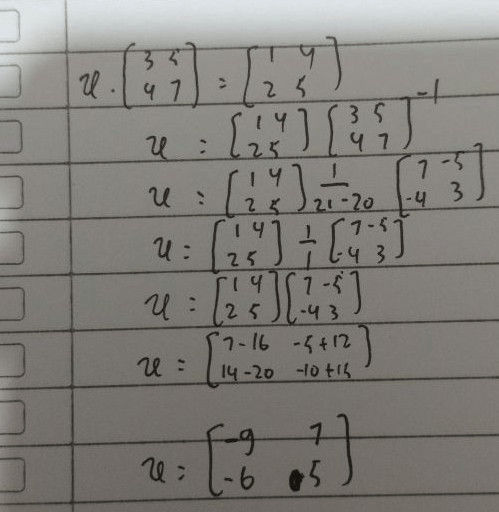 x . [3 5; 4 7] = [1 4; 2 5]
x = [1 4; 2 5] [3 5; 4 7]^-1
x = [1 4; 2 5] 1/(21-20) [7 -5; -4 3]
x = [1 4; 2 5] 1/1 [7 -5; -4 3]
x = [1 4; 2 5] [7 -5; -4 3]
x = [7-16 -5+12; 14-20 -10+15]
x = [-9 7; -6 5]